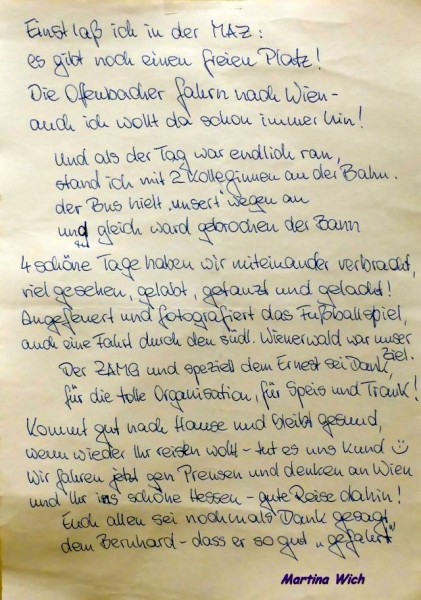 Einst laß ich in der MAZ:
es gibt noch einen freien Platz!
Die Offenbacher fahrn nach Wien -
auch ich wollt da schon immer hin!
Und als der Tag war endlich ran,
stand ich mit 2 Kolleginnen an der Bahn.
der Bus hielt „unsert"wegen an
und gleich ward gebrochen der Bann
4 schöne Tage haben wir miteinander verbracht,
viel gesehen, gelabt, getanzt und gelacht!
Angefeuert und fotografiert das Fußballspiel,
auch eine Fahrt durch den südl. Wienerwald war unser Ziel.
Der ZAMG und speziell dem Ernest sei Dank,
für die tolle Organisation, für Speis und Trank!
Kommt gut nach Hause und bleibt gesund,
wenn wieder Ihr reisten wollt - tut es uns kund ☺
Wir fahren jetzt gen Preusen und denken an Wien
und Ihr ins schöne Hessen - gute Reise dahin!
Euch allen sei nochmals Dank gesagt
dem Bernhard - dass er so gut „gefahrt"
Martina Wich